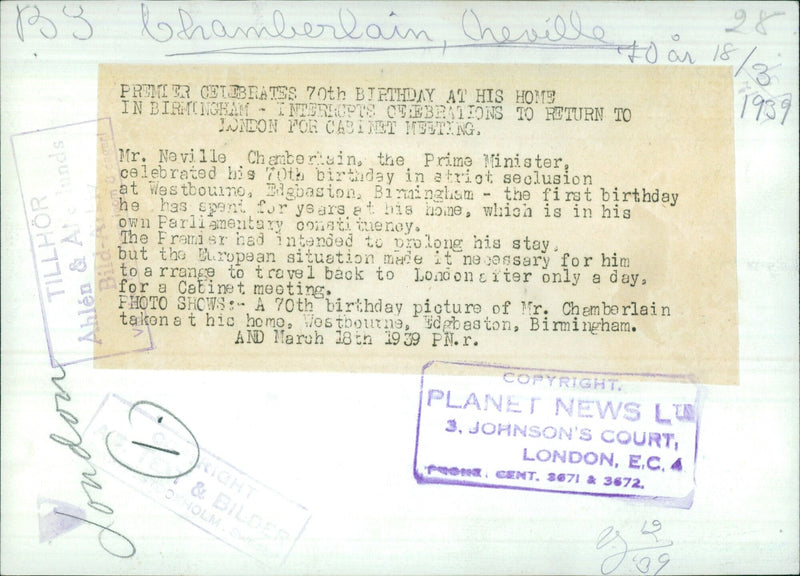 B3 Chamberlain, Neville
28
70 år 18/3 1939
PREMIER CELEBRATES 70th BIRTHDAY AT HIS HOME
IN BIRMINGHAM - INTERRUPTS CELEBRATIONS TO RETURN TO
LONDON FOR CABINET MEETING.
Mr. Neville Chamberlain, the Prime Minister,
celebrated his 70th birthday in strict seclusion
at Westbourne, Edgbaston, Birmingham - the first birthday
he has spent for years at his home, which is in his
own Parliamentary constituency.
The Premier had intended to prolong his stay,
but the European situation made it necessary for him
to a rrange to travel back to London after only a day,
for a Cabinet meeting.
PHOTO SHOWS:- A 70th birthday picture of Mr. Chamberlain
taken at hic home, Westbourne, Edgbaston, Birmingham.
AND March 18th 1939 PN.r.
TILLHÖR
Ahlén & Åkerlunds
London
1.
COPYRIGHT
TEXT & BILDER
STOCKHOLM
COPYRIGHT.
PLANET NEWS LTD
3, JOHNSON'S COURT,
LONDON, E.C. 4
PHONE. CENT. 3671 & 3672.